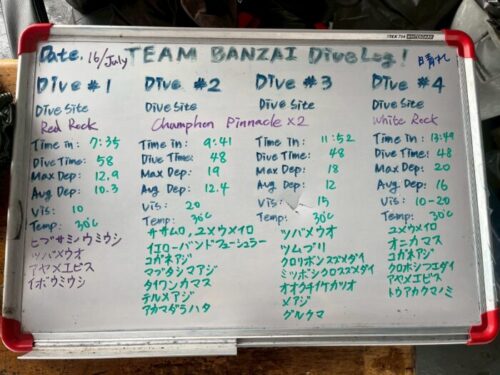 Date, 16/July TEAM BANZAI DiveLog! 晴れ
Dive #1
Dive Site
Red Rock
Time in: 7:35
Dive Time: 58
Max Dep: 12.9
Avg Dep: 10.3
Vis: 10
Temp: 30℃
ヒブサミノウミウシ
ツバメウオ
アヤメエビス
イボウミウシ
Dive #2
Dive Site
Champhon Pinnacle x2
Time in: 9:41
Dive Time: 48
Max Dep: 19
Avg Dep: 12.4
Vis: 20
Temp: 30℃
ササムロ, ユメウメイロ
イエローバンドフュージュラー
コガネアジ
マブタシマアジ
タイワンカマス
テルメアジ
アカマダラハタ
Dive #3
Dive Site
Time in: 11:52
Dive Time: 48
Max Dep: 18
Avg Dep: 12
Vis: 15
Temp: 30℃
ツバメウオ
ツムブリ
クロリボンスズメダイ
ミツボシクロスズメダイ
オオクチイケカツオ
メアジ
グルクマ
Dive #4
Dive Site
White Rock
Time in: 13:49
Dive Time: 48
Max Dep: 20
Avg Dep: 16
Vis: 10-20
Temp: 30℃
ユメウメイロ
オニカマス
コガネアジ
クロホシフエダイ
アヤメエビス
トウアカクマノミ